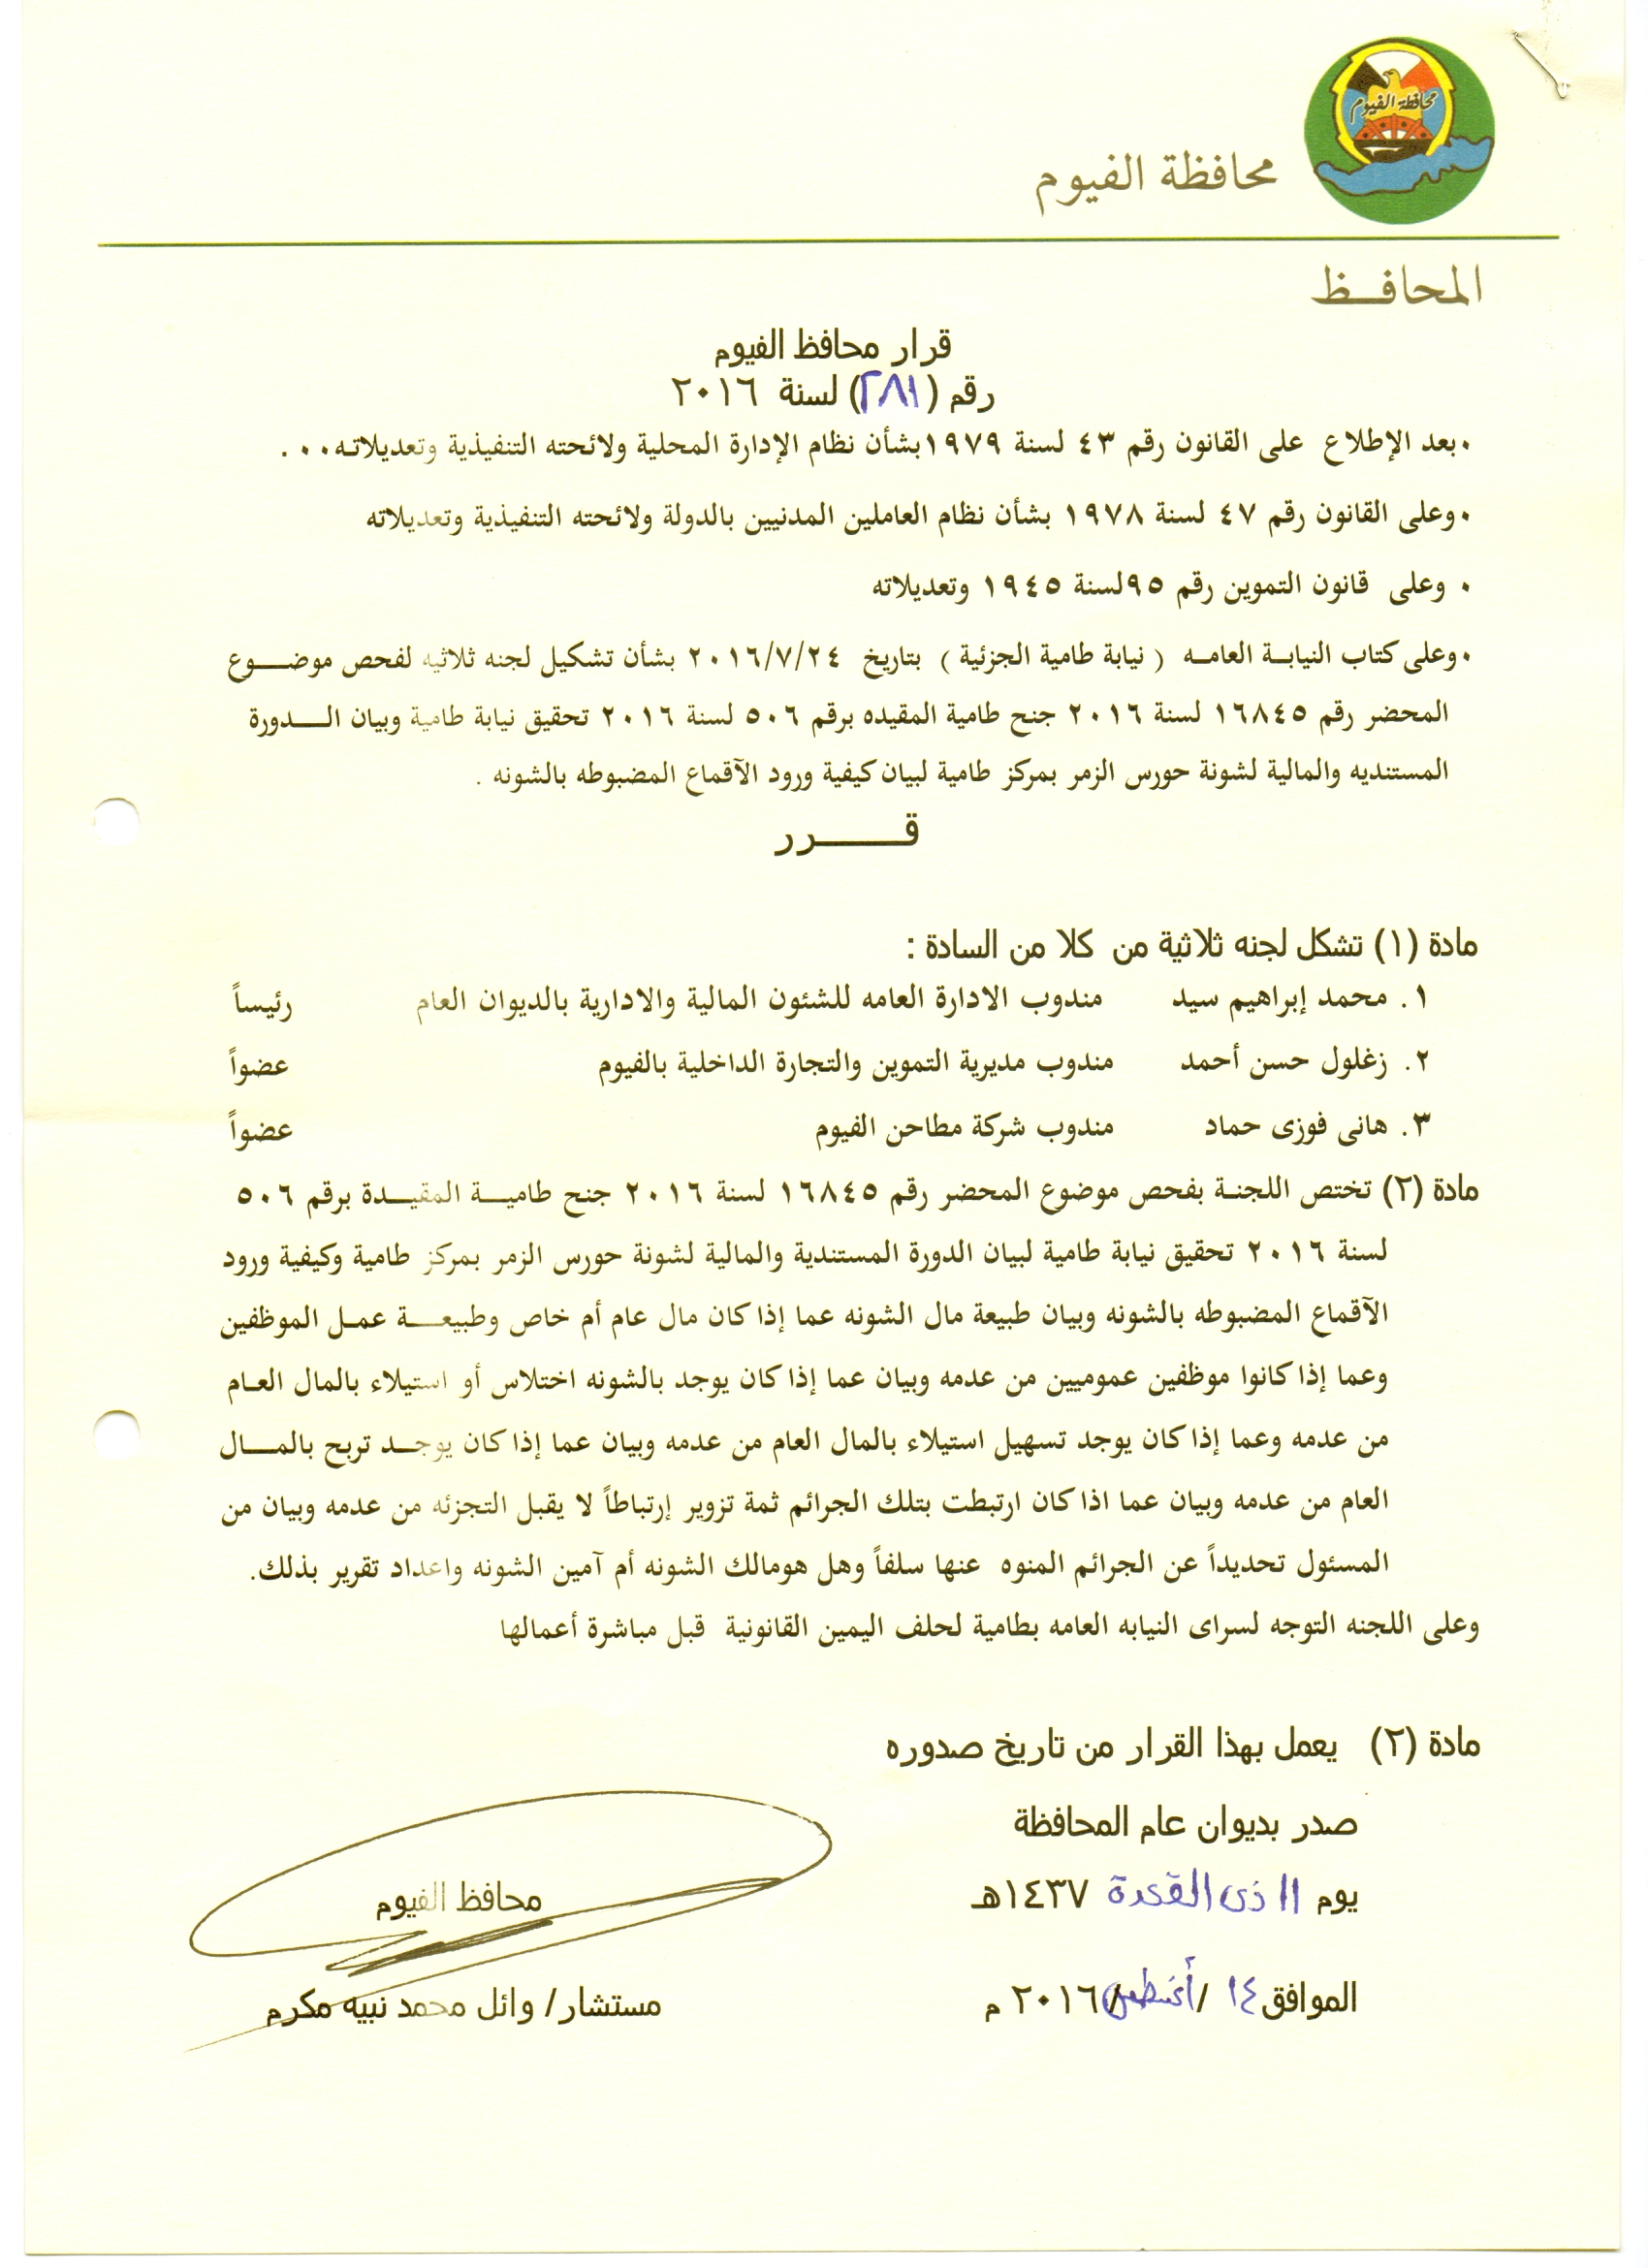 محافظة الفيوم
محافظة الفيوم
المحافـــظ
قرار محافظ الفيوم
رقم (٢٨١) لسنة ٢٠١٦
٠بعد الإطلاع على القانون رقم ٤٣ لسنة ١٩٧٩بشأن نظام الإدارة المحلية ولائحته التنفيذية وتعديلاتـه٠٠ .
٠وعلى القانون رقم ٤٧ لسنة ١٩٧٨ بشأن نظام العاملين المدنيين بالدولة ولائحته التنفيذية وتعديلاته
٠ وعلى قانون التموين رقم ٩٥لسنة ١٩٤٥ وتعديلاته
٠وعلى كتاب النيابـة العامـه ( نيابة طامية الجزئية ) بتاريخ ٢٠١٦/٧/٢٤ بشأن تشكيل لجنه ثلاثيه لفحص موضـــوع
المحضر رقم ١٦٨٤٥ لسنة ٢٠١٦ جنح طامية المقيده برقم ٥٠٦ لسنة ٢٠١٦ تحقيق نيابة طامية وبيان الـــدورة
المستنديه والمالية لشونة حورس الزمر بمركز طامية لبيان كيفية ورود الآقماع المضبوطه بالشونه .
قـــــرر
مادة (١) تشكل لجنه ثلاثية من كلا من السادة :
١. محمد إبراهيم سيد مندوب الادارة العامه للشئون المالية والادارية بالديوان العام رئيساً
٢. زغلول حسن أحمد مندوب مديرية التموين والتجارة الداخلية بالفيوم عضواً
٣. هانى فوزى حماد مندوب شركة مطاحن الفيوم عضواً
مادة (٢) تختص اللجنـة بفحص موضوع المحضر رقم ١٦٨٤٥ لسنة ٢٠١٦ جنح طاميـــة المقيـــدة برقم ٥٠٦
لسنة ٢٠١٦ تحقيق نيابة طامية لبيان الدورة المستندية والمالية لشونة حورس الزمر بمركز طامية وكيفية ورود
الآقماع المضبوطه بالشونه وبيان طبيعة مال الشونه عما إذا كان مال عام أم خاص وطبيعـــة عمـل الموظفين
وعما إذا كانوا موظفين عموميين من عدمه وبيان عما إذا كان يوجد بالشونه اختلاس أو استيلاء بالمال العـام
من عدمه وعما إذا كان يوجد تسهيل استيلاء بالمال العام من عدمه وبيان عما إذا كان يوجــد تربح بالمـــال
العام من عدمه وبيان عما اذا كان ارتبطت بتلك الجرائم ثمة تزوير إرتباطاً لا يقبل التجزئه من عدمه وبيان من
المسئول تحديداً عن الجرائم المنوه عنها سلفاً وهل هومالك الشونه أم آمين الشونه واعداد تقرير بذلك.
وعلى اللجنه التوجه لسراى النيابه العامه بطامية لحلف اليمين القانونية قبل مباشرة أعمالها
مادة (٢) يعمل بهذا القرار من تاريخ صدوره
صدر بديوان عام المحافظة
يوم ١١ ذى القعدة ١٤٣٧هـ
الموافق ١٤ / أغسطس/ ٢٠١٦ م
محافظ الفيوم
مستشار/ وائل محمد نبيه مكرم